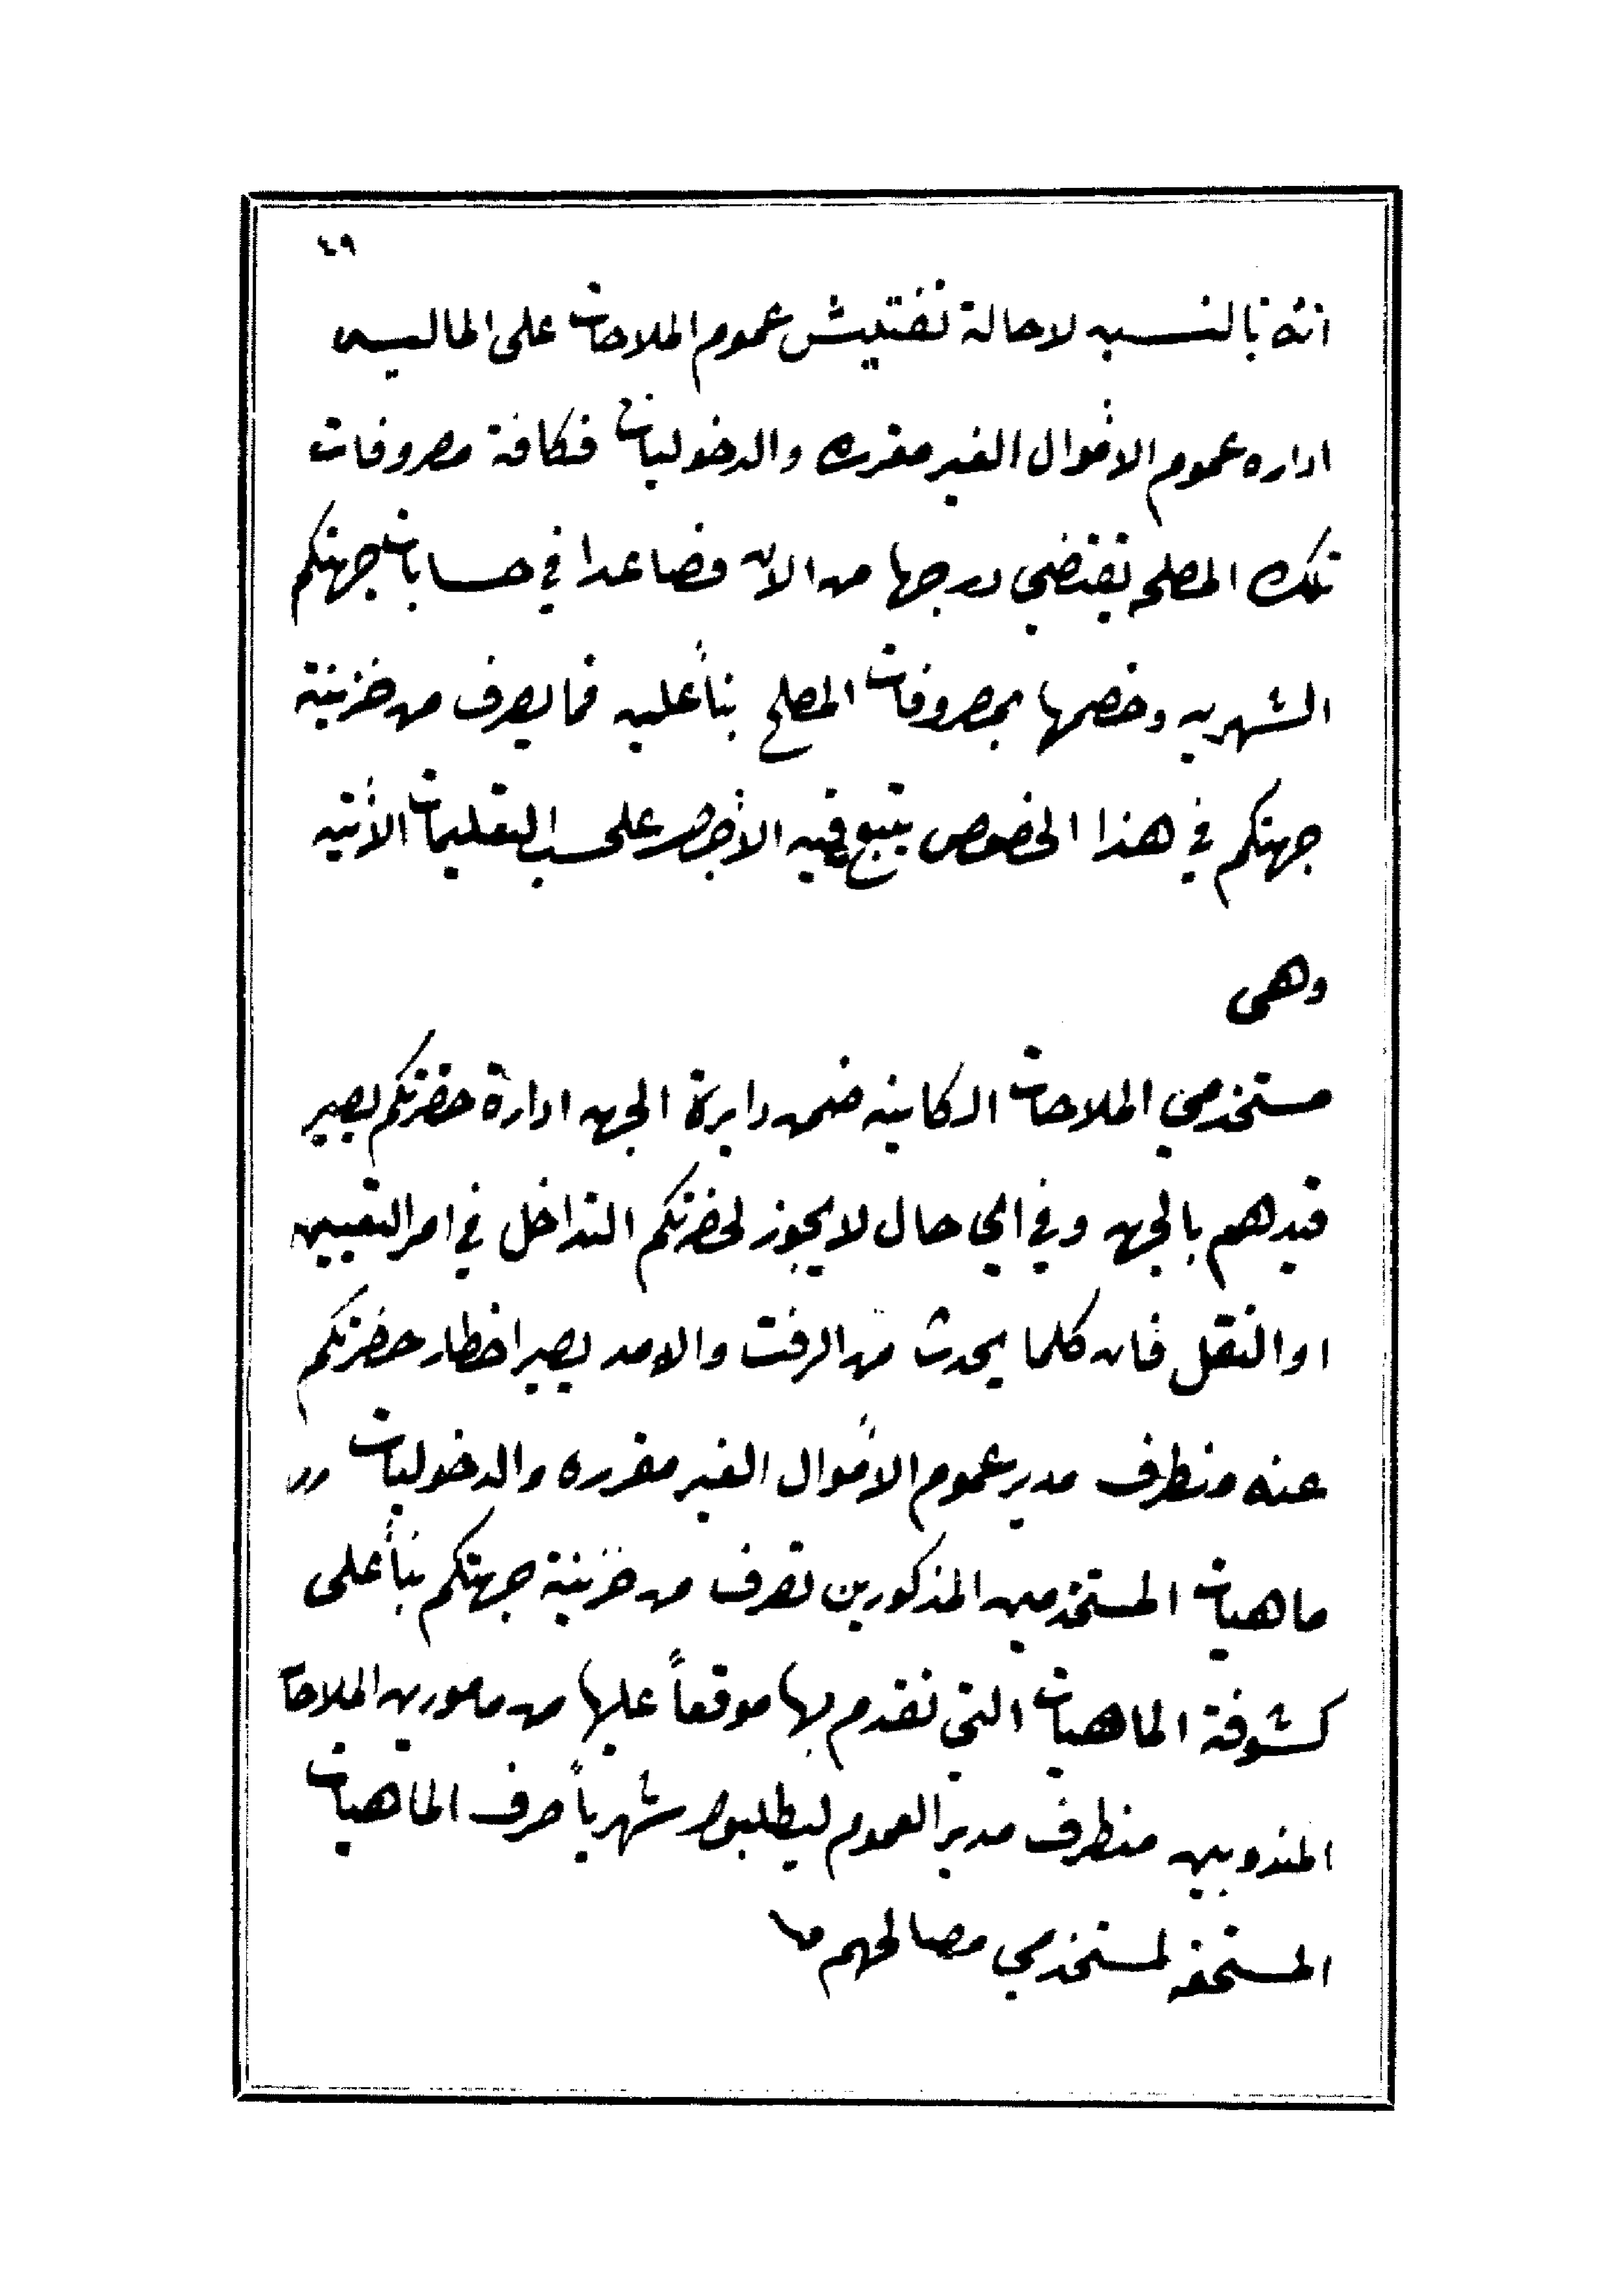 ٤٩
انه بالنسبه لاحالة تفتيش عموم الملاحات على الماليه
اداره عموم الاموال الغير مقرره والدخوليات فكافة مصروفات
تلك المصلحه يقتضي درجها من الان فصاعدا في حسابات جهتكم
الشهريه وخصمها بمصروفات المصلحه بناً عليه فما يصرف من خزينة
جهتكم في هذا الخصوص يتبع فيه الأجرا على حسب التعليمات الأتيه
وهى
مستخدمي الملاحات الكاينه ضمن دايرة الجهه ادارة حضرتكم يصير
قيدهم بالجهه وفي اي حال لا يجوز لحضرتكم التداخل في امر التعيين
او النقل فان كلما يحدث من الرفت والامد يصير اخطار حضرتكم
عنه منطرف مدير عموم الاموال الغير مقرره والدخوليات
ماهيات المستخدمين المذكورين تصرف من خزينة جهتكم بناً على
كشوفة الماهيات التى تقدم بها موقعاً عليها من مامورين الملاحات
المندوبين منطرف مدير العموم ليطلبوا شهرياً صرف الماهيات
المستحقه لمستخدمي مصالحهم